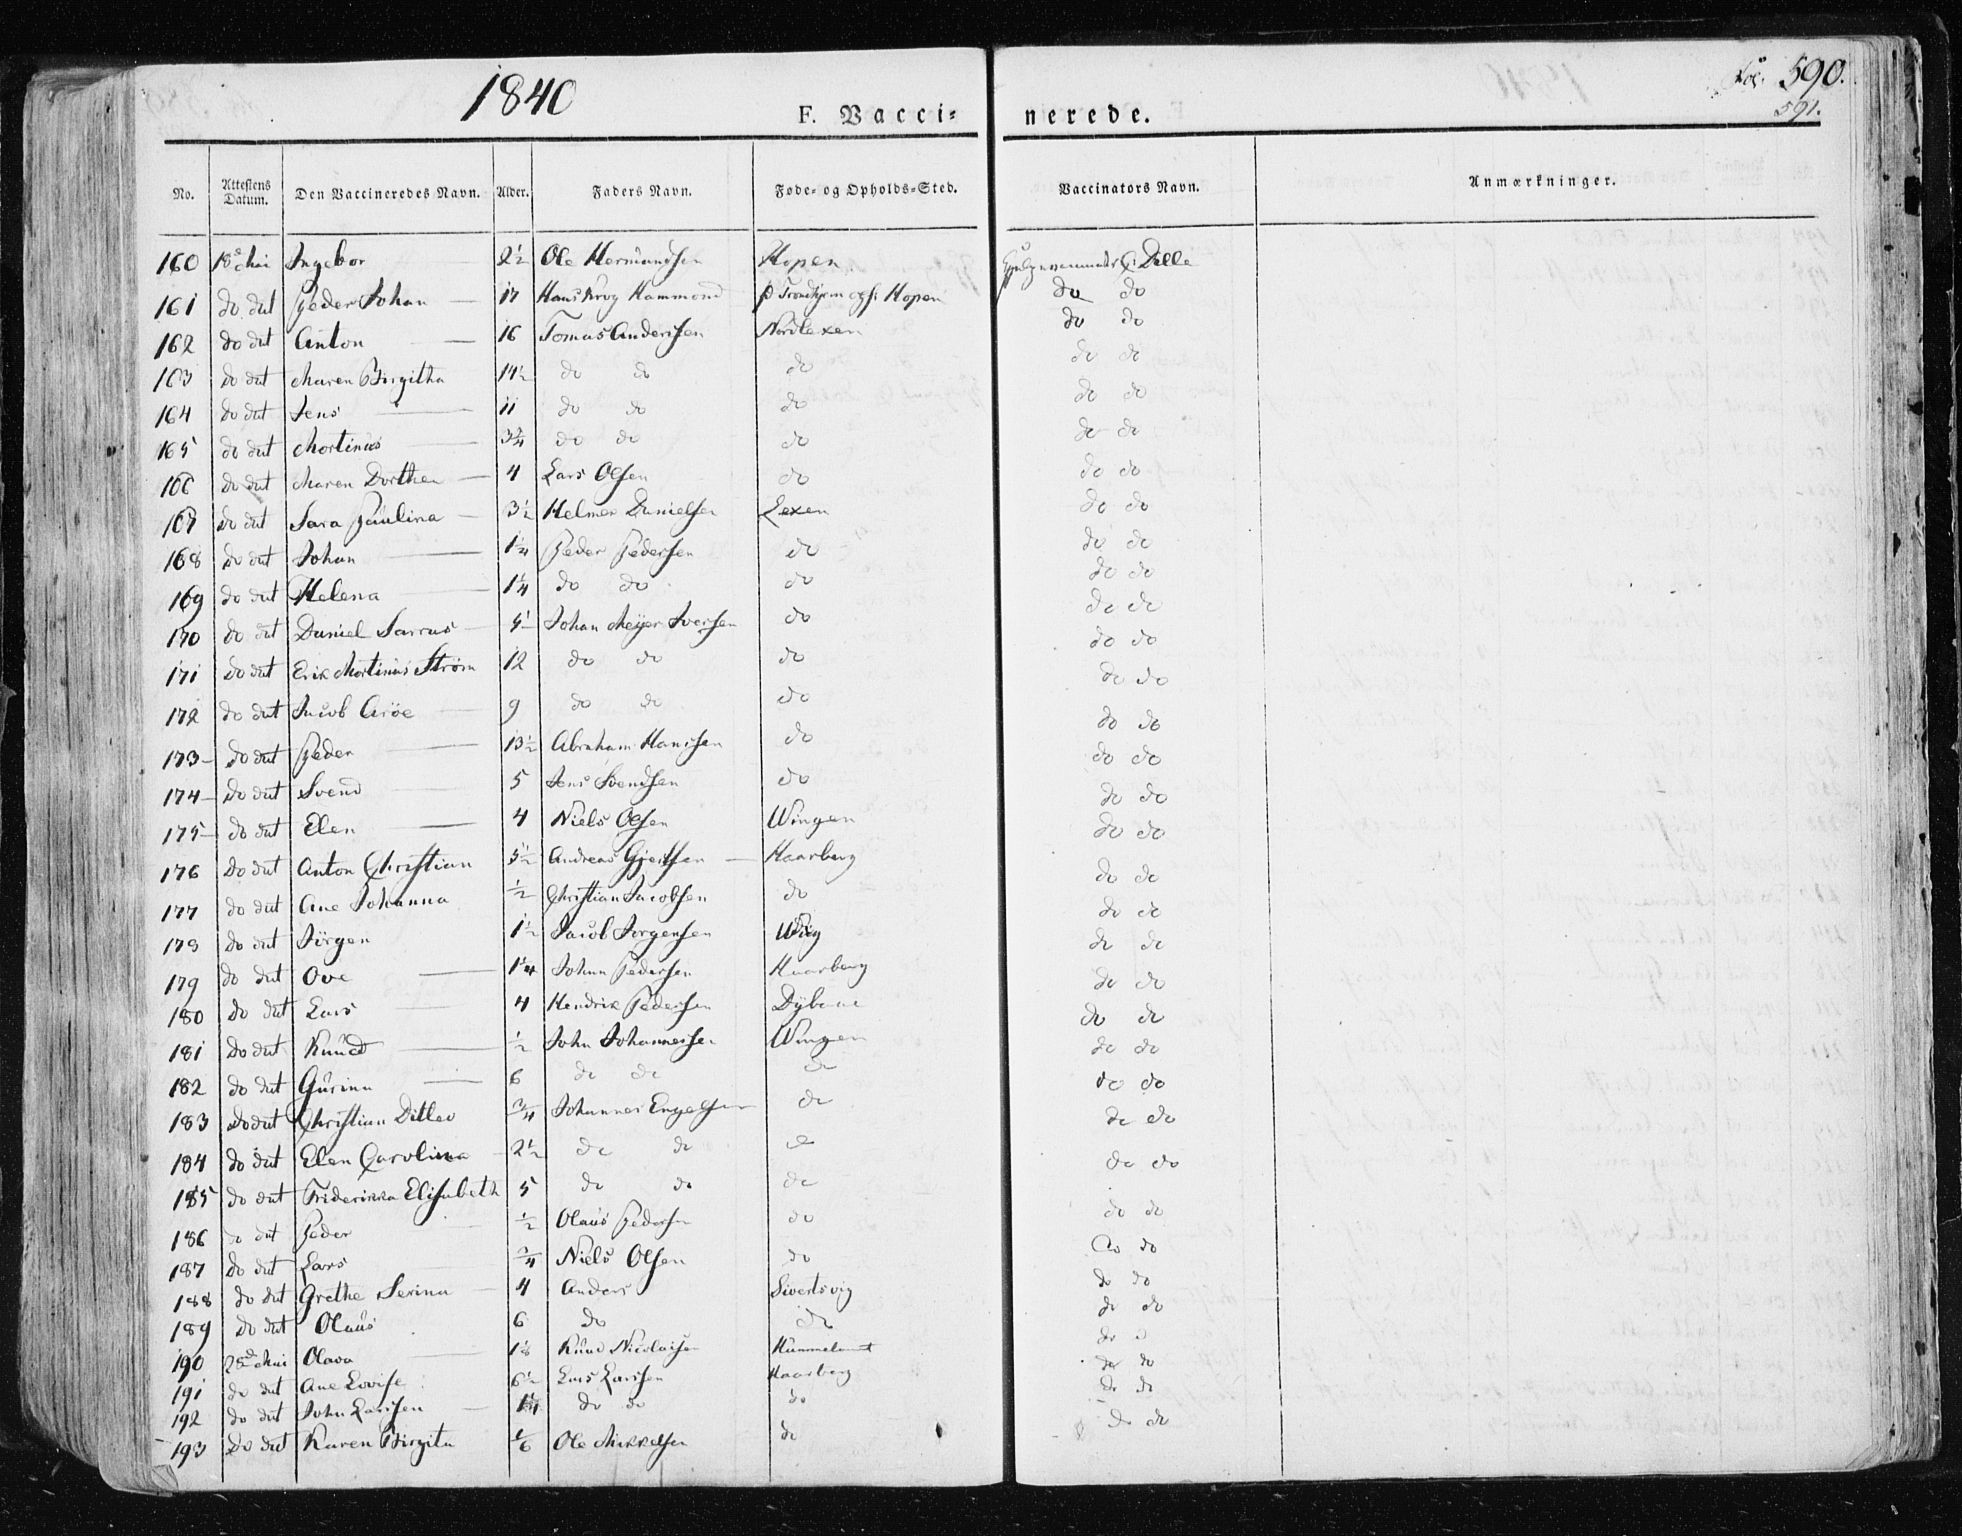 1840
Fol. 590.
591.
F. Vacci- nerede.
No. Attestens Datum. Den Vaccineredes Navn. Alder. Faders Navn. Føde- og Opholds-Sted. Vaccinators Navn. Anmærkninger.
160 18de Mai Ingebor 2½ Ole Hermandsen Hopen Dille
161 do dat Peder Johan 17 Hans Krog Hammond Trondhjem Hopen do do
162 do dat Anton 16 Tomas Anderssen Nordlexen do do
163 do dat Maren Birgitha 14½ do do do do do
164 do dat Jens 11 do do do do do
165 do dat Mortinus 3¾ do do do do do
166 do dat Maren Dorthea 4 Lars Olsen do do do
167 do dat Sara Paulina 3½ Helmer Danielsen Lexen do do
168 do dat Johan 1¼ Peder Pedersen do do do
169 do dat Helena 1¼ do do do do do
170 do dat Daniel Johan Meyer Iversen do do do
171 do dat Erik Mortinus Strøm 12 do do do do do
172 do dat Jacob Arøe 9 do do do do do
173 do dat Peder 13½ Abraham Hanssen do do do
174 do dat Svend 5 Jens Svendsen do do do
175 do dat Elen 4 Niels Olsen Wingen do do
176 do dat Anton Christian 5½ Andreas Gjertsen Haarberg do do
177 do dat Ane Johanna ½ Christian Jacobsen do do do
178 do dat Jörgen 1½ Jacob Jørgensen Wiig do do
179 do dat Ove 1¼ Johan Pedersen Haarberg do do
180 do dat Lars 4 Hendrik Pedersen do do
181 do dat Knud ½ John Johannessen Wingen do do
182 do dat Gurina 6 do do do do do
183 do dat Christian Ditlev ¾ Johannes Engelsen do do do
184 do dat Elen Carolina 2½ do do do do do
185 do dat Friderikka Elisabeth 5 do do do do do
186 do dat Peder ½ Olaus Pedersen do do do
187 do dat Lars ¾ Niels Olsen do do do
188 do dat Grethe Serina 4 Anders Sivertsvig do do
189 do dat Olaus 6 do do do do
190 25de Mai Olava Knud Nicolaisen do do
191 do dat Ane Lovise 6½ Lars Larssen Haarberg do do
192 do dat John Larssen 1¼ do do do do do
193 do dat Karen Birgita Ole Mikkelsen do do do